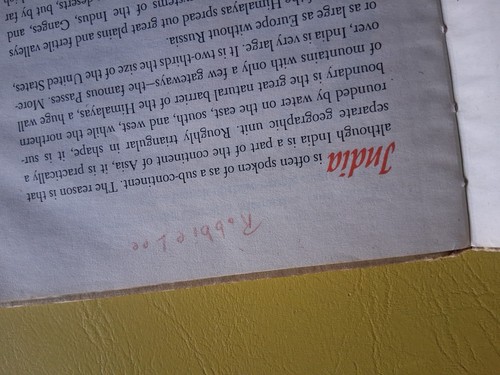 Robbie Lee
India is often spoken of as a sub-continent. The reason is that
although India is a part of the continent of Asia, it is practically a
separate geographic unit. Roughly triangular in shape, it is sur-
rounded by water on the east, south, and west, while the northern
boundary is the great natural barrier of the Himalayas, a huge wall
of mountains with only a few gateways—the famous Passes. More-
over, India is very large. It is two-thirds the size of the United States,
or as large as Europe without Russia.
of the Himalayas spread out great plains and fertile valleys
systems of the Indus, Ganges, and
deserts, but by far